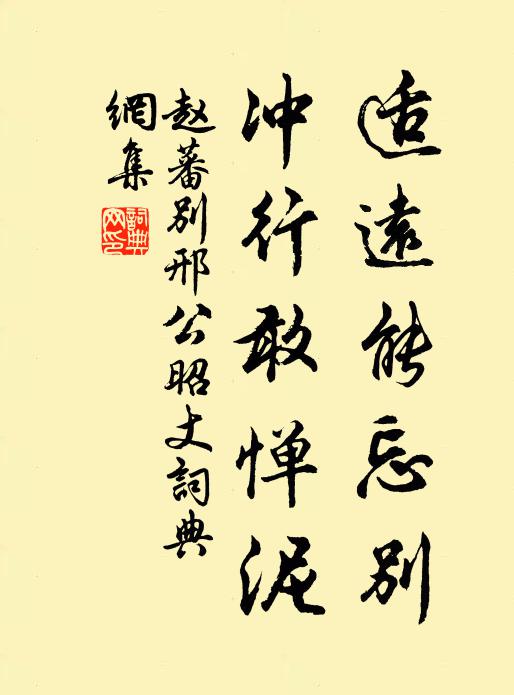 适遠能忘别
冲行敢惮泥
赵蕃别邢公昭丈詞典
網集
詞典
网印